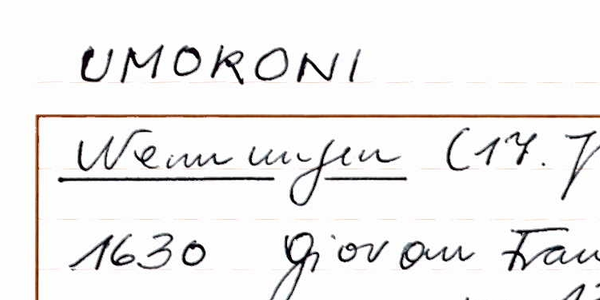 UMORONI
Wenn ungen (17. J
1630 Giovan Fran